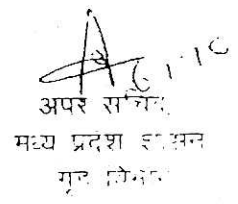 अपर सचिव,
मध्य प्रदेश शासन
गृह विभाग